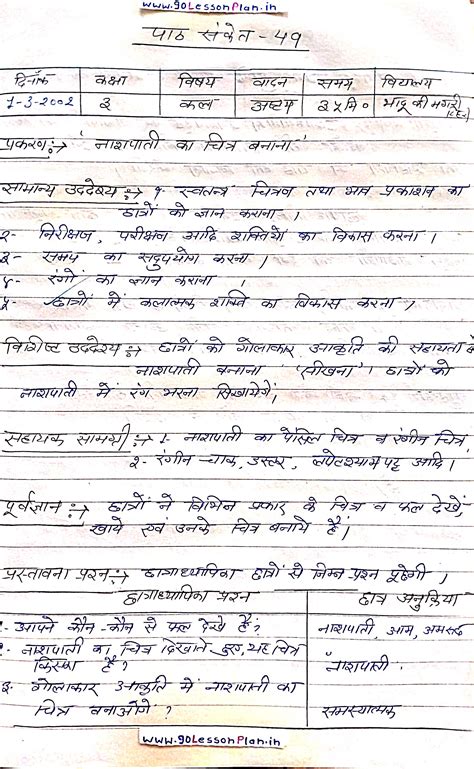 www.90LessonPlan.in
पाठ संकेत - 49
दिनाँक कक्षा विषय वादन समय विद्यालय
1-3-2002 ३ कला अष्टम ३५ मि० भादू की मगरी
प्रकरण :→ 'नाशपाती का चित्र बनाना'
सामान्य उद्देश्य :→ १- स्वतन्त्र चित्रण तथा भाव प्रकाशन का
छात्रों को ज्ञान कराना ।
२- निरीक्षण, परीक्षण आदि शक्तियों का विकास करना ।
३- समय का सदुपयोग करना ।
४- रंगों का ज्ञान कराना ।
५- छात्रों में कलात्मक शक्ति का विकास करना ।
विशिष्ट उद्देश्य :→ छात्रों को गोलाकार आकृति की सहायता से
नाशपाती बनाना (सीखना) । छात्रों को
नाशपाती में रंग भरना सिखायेंगे।
सहायक सामग्री :→ 1- नाशपाती का पेंसिल चित्र व रंगीन चित्र
२- रंगीन चाक, डस्टर, लपेटश्यामपट्ट आदि ।
पूर्वज्ञान :→ छात्रों ने विभिन्न प्रकार के चित्र व फल देखे,
खाये एवं उनके चित्र बनाये हैं।
प्रस्तावना प्रश्न :→ छात्राध्यापिका छात्रों से निम्न प्रश्न पूछेगी ।
छात्राध्यापिका प्रश्न छात्र अनुक्रिया
- आपने कौन-कौन से फल देखे हैं? नाशपाती, आम, अमरूद
- नाशपाती का चित्र दिखाते हुए यह चित्र
किसका है? नाशपाती
३- गोलाकार आकृति में नाशपाती का
चित्र बनाओगे ? समस्यात्मक
www.90LessonPlan.in